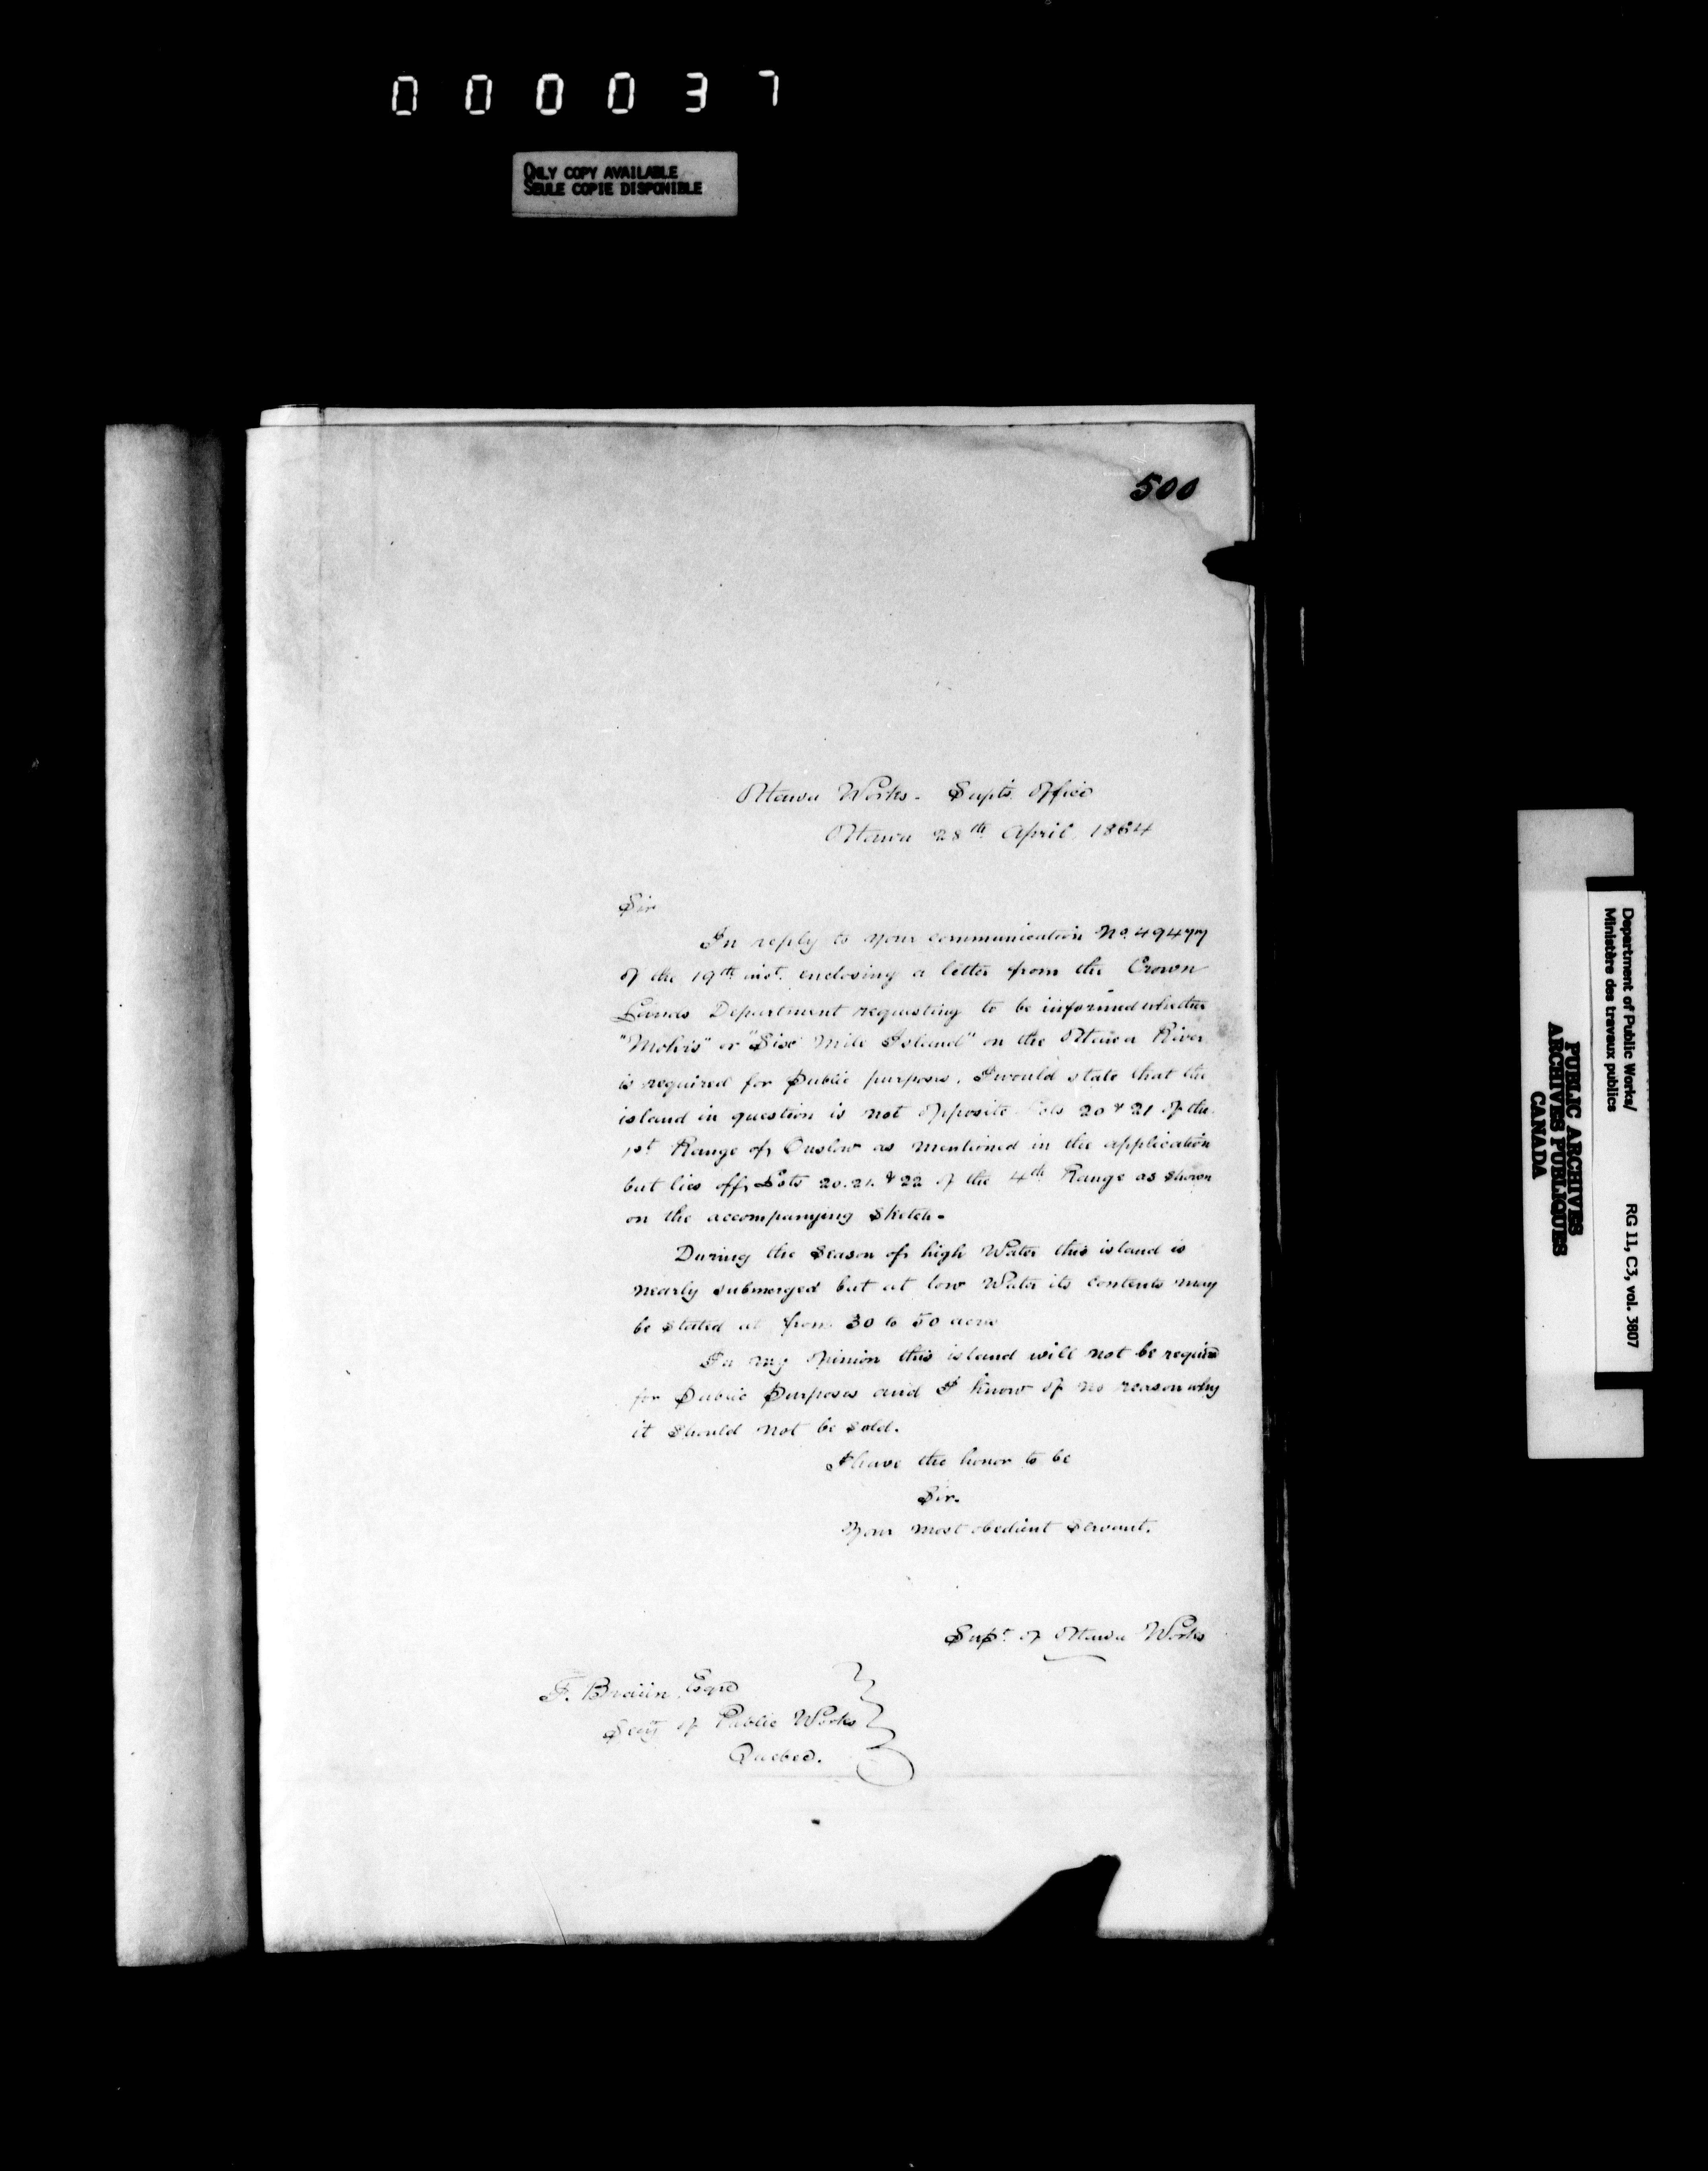 000037
ONLY COPY AVAILABLE
SEULE COPIE DISPONIBLE
500
Ottawa Works. Supts. Office
Ottawa 28th April, 1864
Sir
In reply to your communication No. 49477
of the 19th inst. enclosing a letter from the Crown
Lands Department requesting to be informed whether
"Mohrs" or "Six Mile Island" on the Ottawa River
is required for Public purposes. I would state that the
island in question is not opposite Lots 20 & 21 of the
1st Range of Onslow as mentioned in the application
but lies off Lots 20. 21. & 22 of the 4th Range as shown
on the accompanying Sketch.
During the Season of high Water this island is
nearly submerged but at low Water its contents may
be Stated at from 30 to 50 acres
In my opinion this island will not be required
for Public Purposes and I know of no reason why
it Should not be Sold.
I have the honor to be
Sir.
Your most obedient Servant.
Supt. of Ottawa Works
F. Braün Esqre
Secty of Public Works
Quebec.
Department of Public Works/
Ministère des travaux publics
RG 11, C3, vol. 3807
PUBLIC ARCHIVES
ARCHIVES PUBLIQUES
CANADA